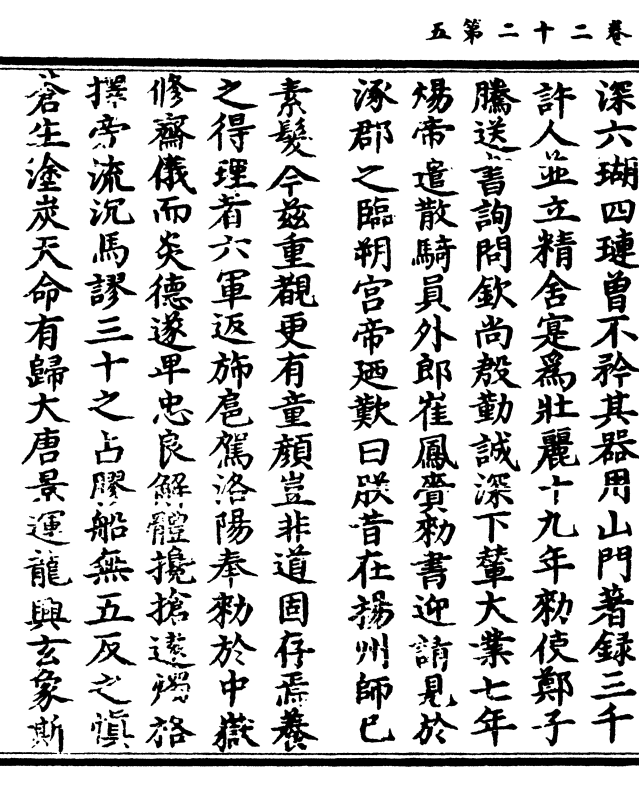 卷二十二第五
深六瑚四璉曾不矜其器用山門著録三千
許人並立精舍寔爲壯麗十九年勑使鄭子
騰送書詢問欽尚殷勤誠深下輦大業七年
煬帝遣散騎員外郎崔鳳賷勑書迎請見於
涿郡之臨朔宫帝廼歎曰朕昔在揚州師已
素髮今兹重覩更有童顔豈非道固存焉養
之得理者六軍返斾扈駕洛陽奉勑於中嶽
修齋儀而炎德遂卑忠良解體攙搶遠
擇帝流沉馬謬三十之占膠船無五反之慎
蒼生塗炭天命有歸大唐景運龍興玄象斯